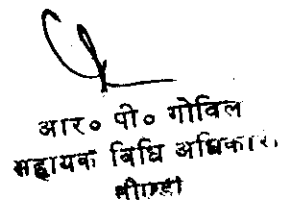 आर० पी० गोविल
सहायक विधि अधिकारी